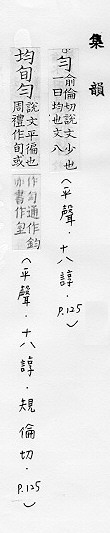 集韻
勻俞倫切說文少也
一曰均也文八
(平聲.十八諄.P.125)
均旬勻說文平徧也
周禮作旬或
作勻通作鈞
亦書作
(平聲.十八諄.規倫切.P.125)